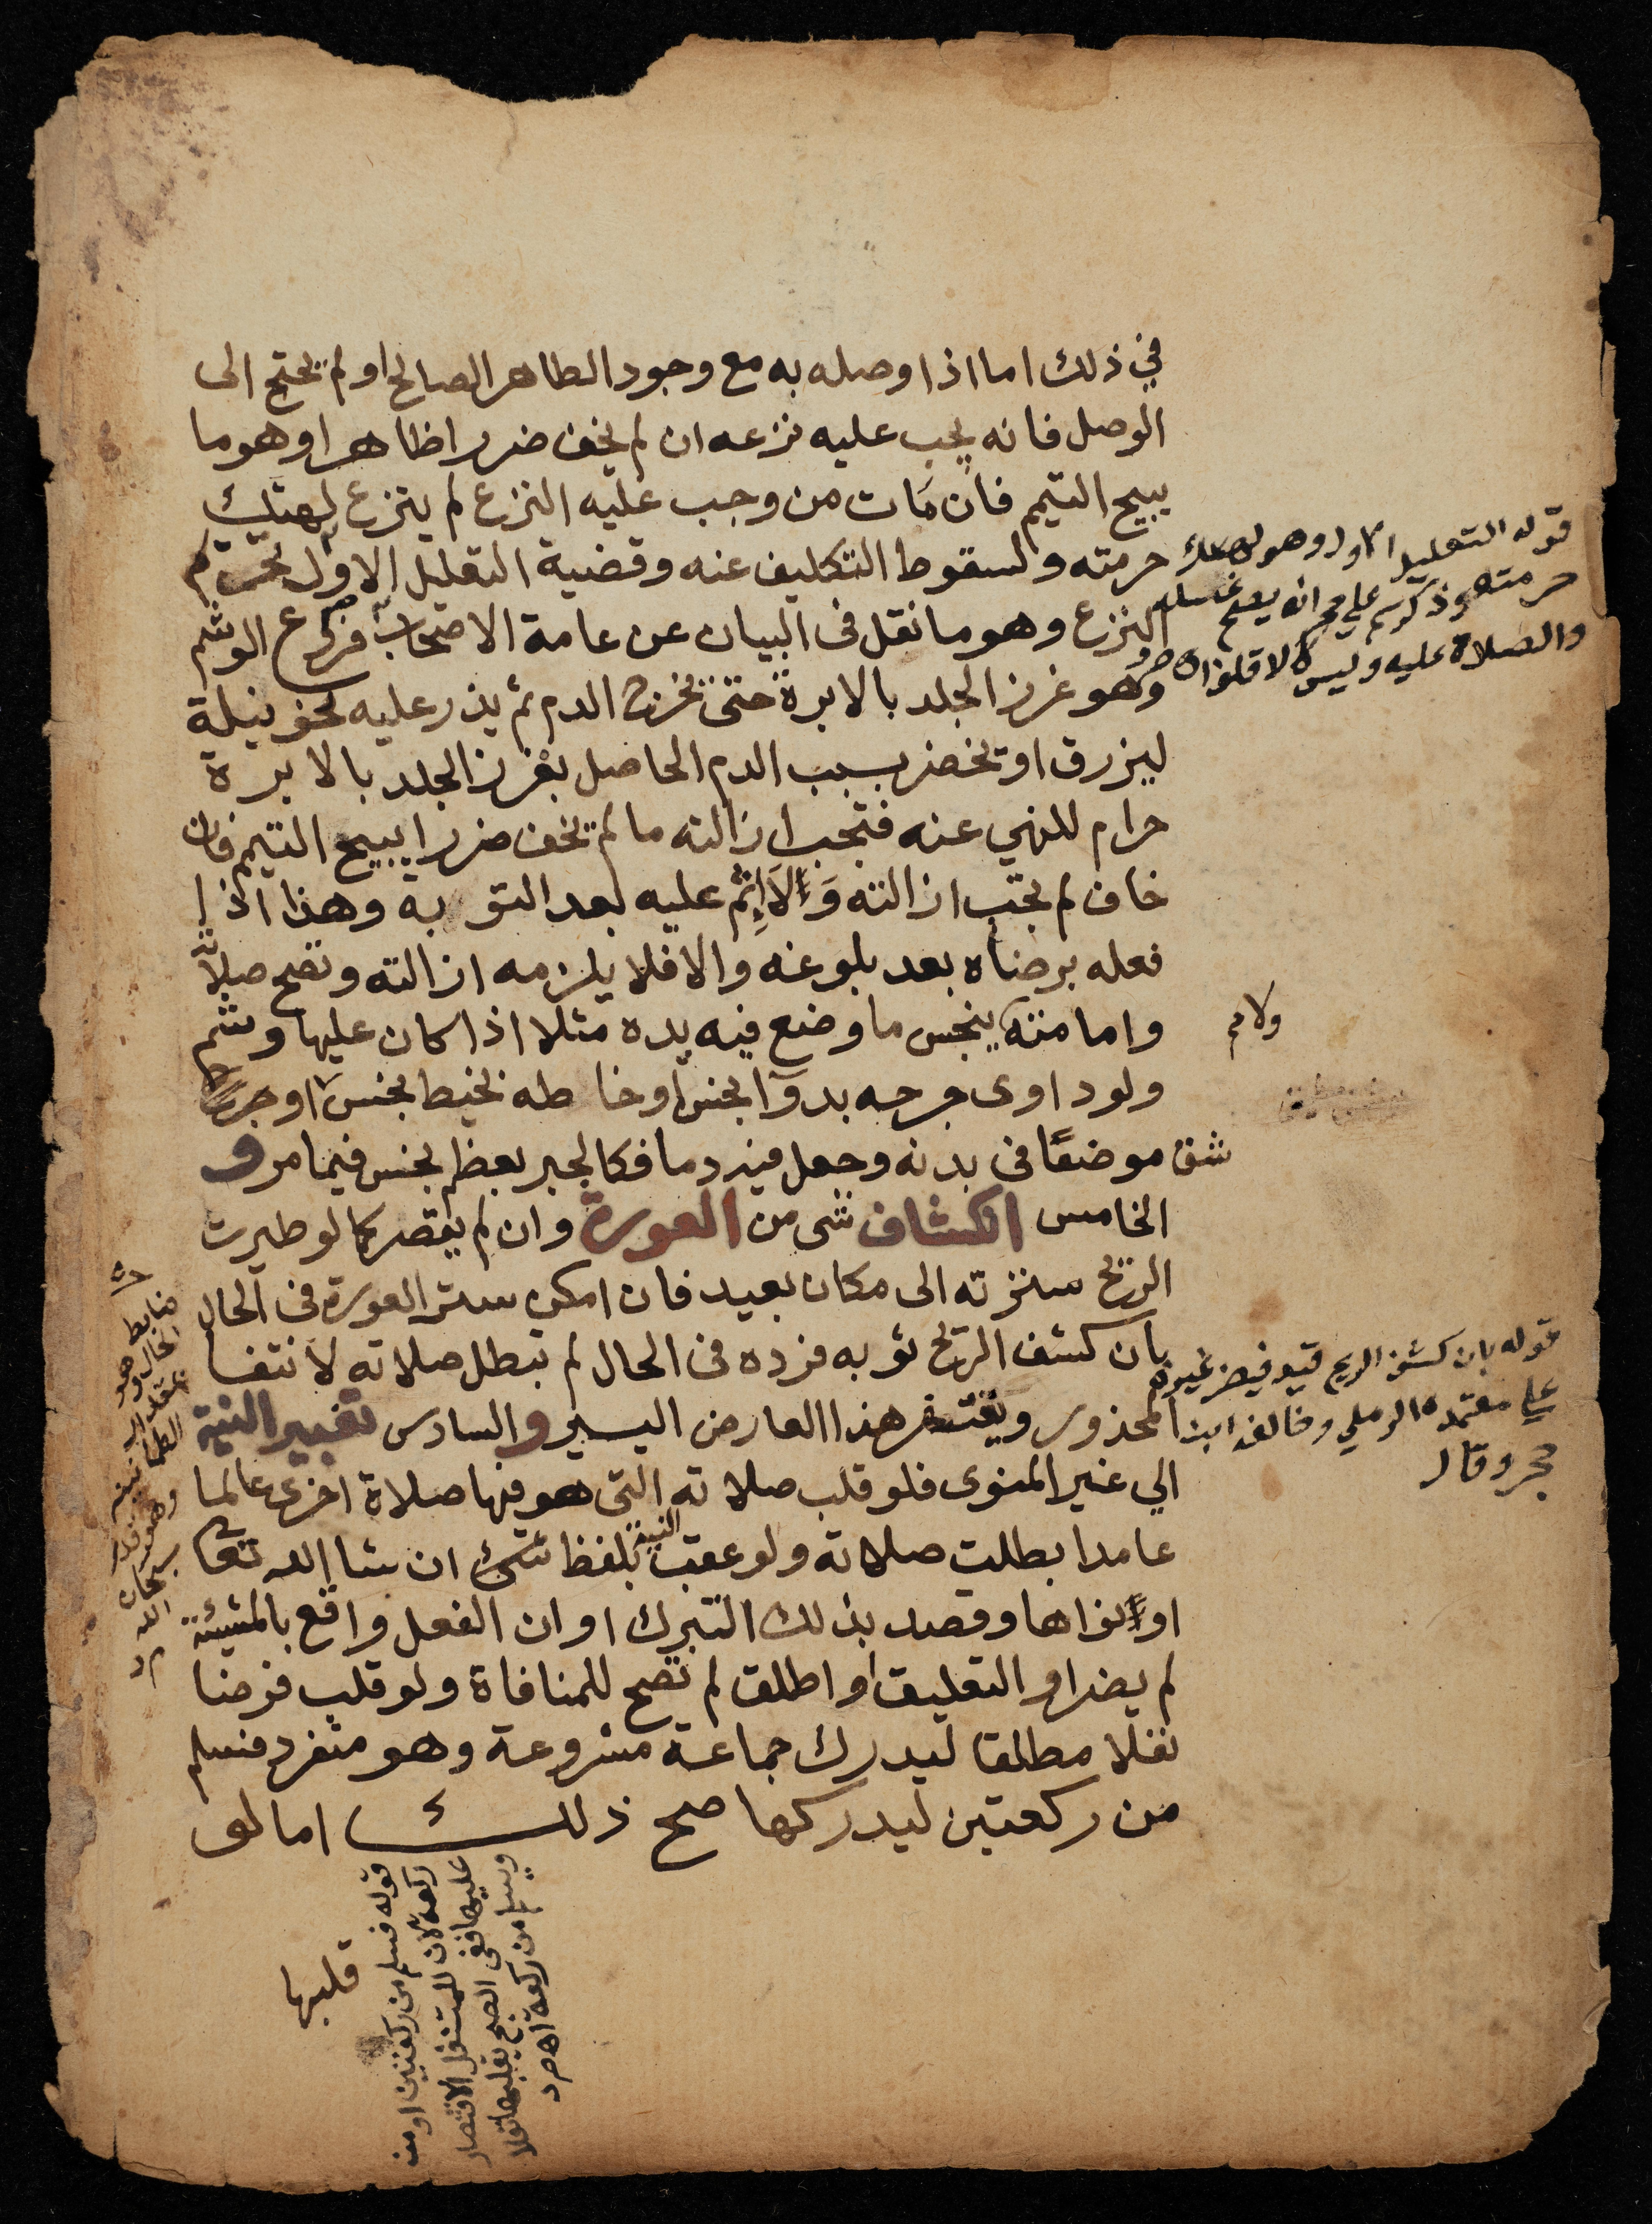 في ذلك اما اذا وصله به مع وجود الطاهر الصالح او لم يحتج الى
الوصل فانه يجب عليه نزعه ان لم يخف ضررا ظاهرا وهو ما
يبيح التيمم فان مات من وجب عليه النزع لم ينزع لهتك
حرمته ولسقوط التكليف عنه وقضية التعليل الاول تحريم
النزع وهو ما نقل فى البيان عن عامة الاصحاب فرع الوشم
وهو غرز الجلد بالابرة حتى يخرج الدم ثم يذر عليه نحو نيلة
ليزرق او يخضر بسبب الدم الحاصل بغرز الجلد بالابرة
حرام للنهي عنه فتجب ازالته ما لم يخف ضررا يبيح التيمم فان
خاف لم تجب ازالته وَلَا اِثم عليه بعد التوبة وهذا اذا
فعله برضاه بعد بلوغه والا فلا يلزمه ازالته وتصح صلاته
وامامته ينجس ما وضع فيه يده مثلا اذا كان عليها وشم
ولو داوى جرحه بدوآ نجس او خاطه بخيط نجس او
شق موضعًا فى بدنه وجعل فيه دما فكالجبر بعظم نجس فيما مر و
الخامس انكشاف شى من العورة وان لم يقصر كما لو طيرت
الريح سترته الى مكان بعيد فان امكن ستر العورة فى الحال
بان كشف الريح ثوبه فرده فى الحال لم تبطل صلاته لانتفا
المحذور ويغتفر هذا العارض اليسير والسادس تغيير النية
الي غير المنوى فلو قلب صلاته التى هو فيها صلاة اخرى عالما
عامدا بطلت صلاته ولو عقب النية بلفظ ان شا الله تعا
او نواها وقصد بذلك التبرك او ان الفعل واقع بالمشيئة
لم يضر او التعليق او اطلق لم تصح للمنافاة ولو قلب فرضا
نفلا مطلقا ليدرك جماعة مشروعة وهو منفرد فسلم
من ركعتين ليدركها صح ذلك اما لو
قلبها
قوله التعليل الاول وهو لهتك
حرمته وذكر م علي حجر انه يصح غسله
والصلاة عليه وليس
ولا تم
قوله بان كشف الريح قيد فيضر غيره
علي معتمد الرملي وخالفه ابن
حجر وقال
ضابط
الحال وهو
الطمانينه
وهو قدر
سبحان
الله
قوله فسلم من ركعتين او من
ركعة لان للمتنفل الاقتصار
عليها ففى الصبح يقلبها نفلا
ويسلم من ركعة